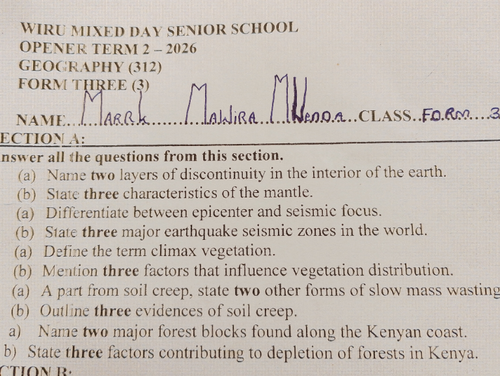 WIRU MIXED DAY SENIOR SCHOOL
OPENER TERM 2 – 2026
GEOGRAPHY (312)
FORM THREE (3)
NAME... MARRK ... MAWIRA MWENDA...CLASS..FORM...3
ECTION A:
nswer all the questions from this section.
(a) Name two layers of discontinuity in the interior of the earth.
(b) State three characteristics of the mantle.
(a) Differentiate between epicenter and seismic focus.
(b) State three major earthquake seismic zones in the world.
(a) Define the term climax vegetation.
(b) Mention three factors that influence vegetation distribution.
(a) A part from soil creep, state two other forms of slow mass wasting
(b) Outline three evidences of soil creep.
a) Name two major forest blocks found along the Kenyan coast.
b) State three factors contributing to depletion of forests in Kenya.
CTION B: